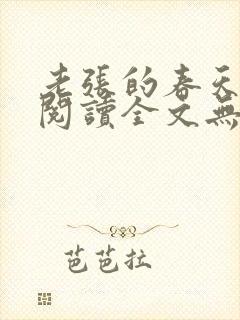 老張的春天
閱讀全文無
芭芭拉